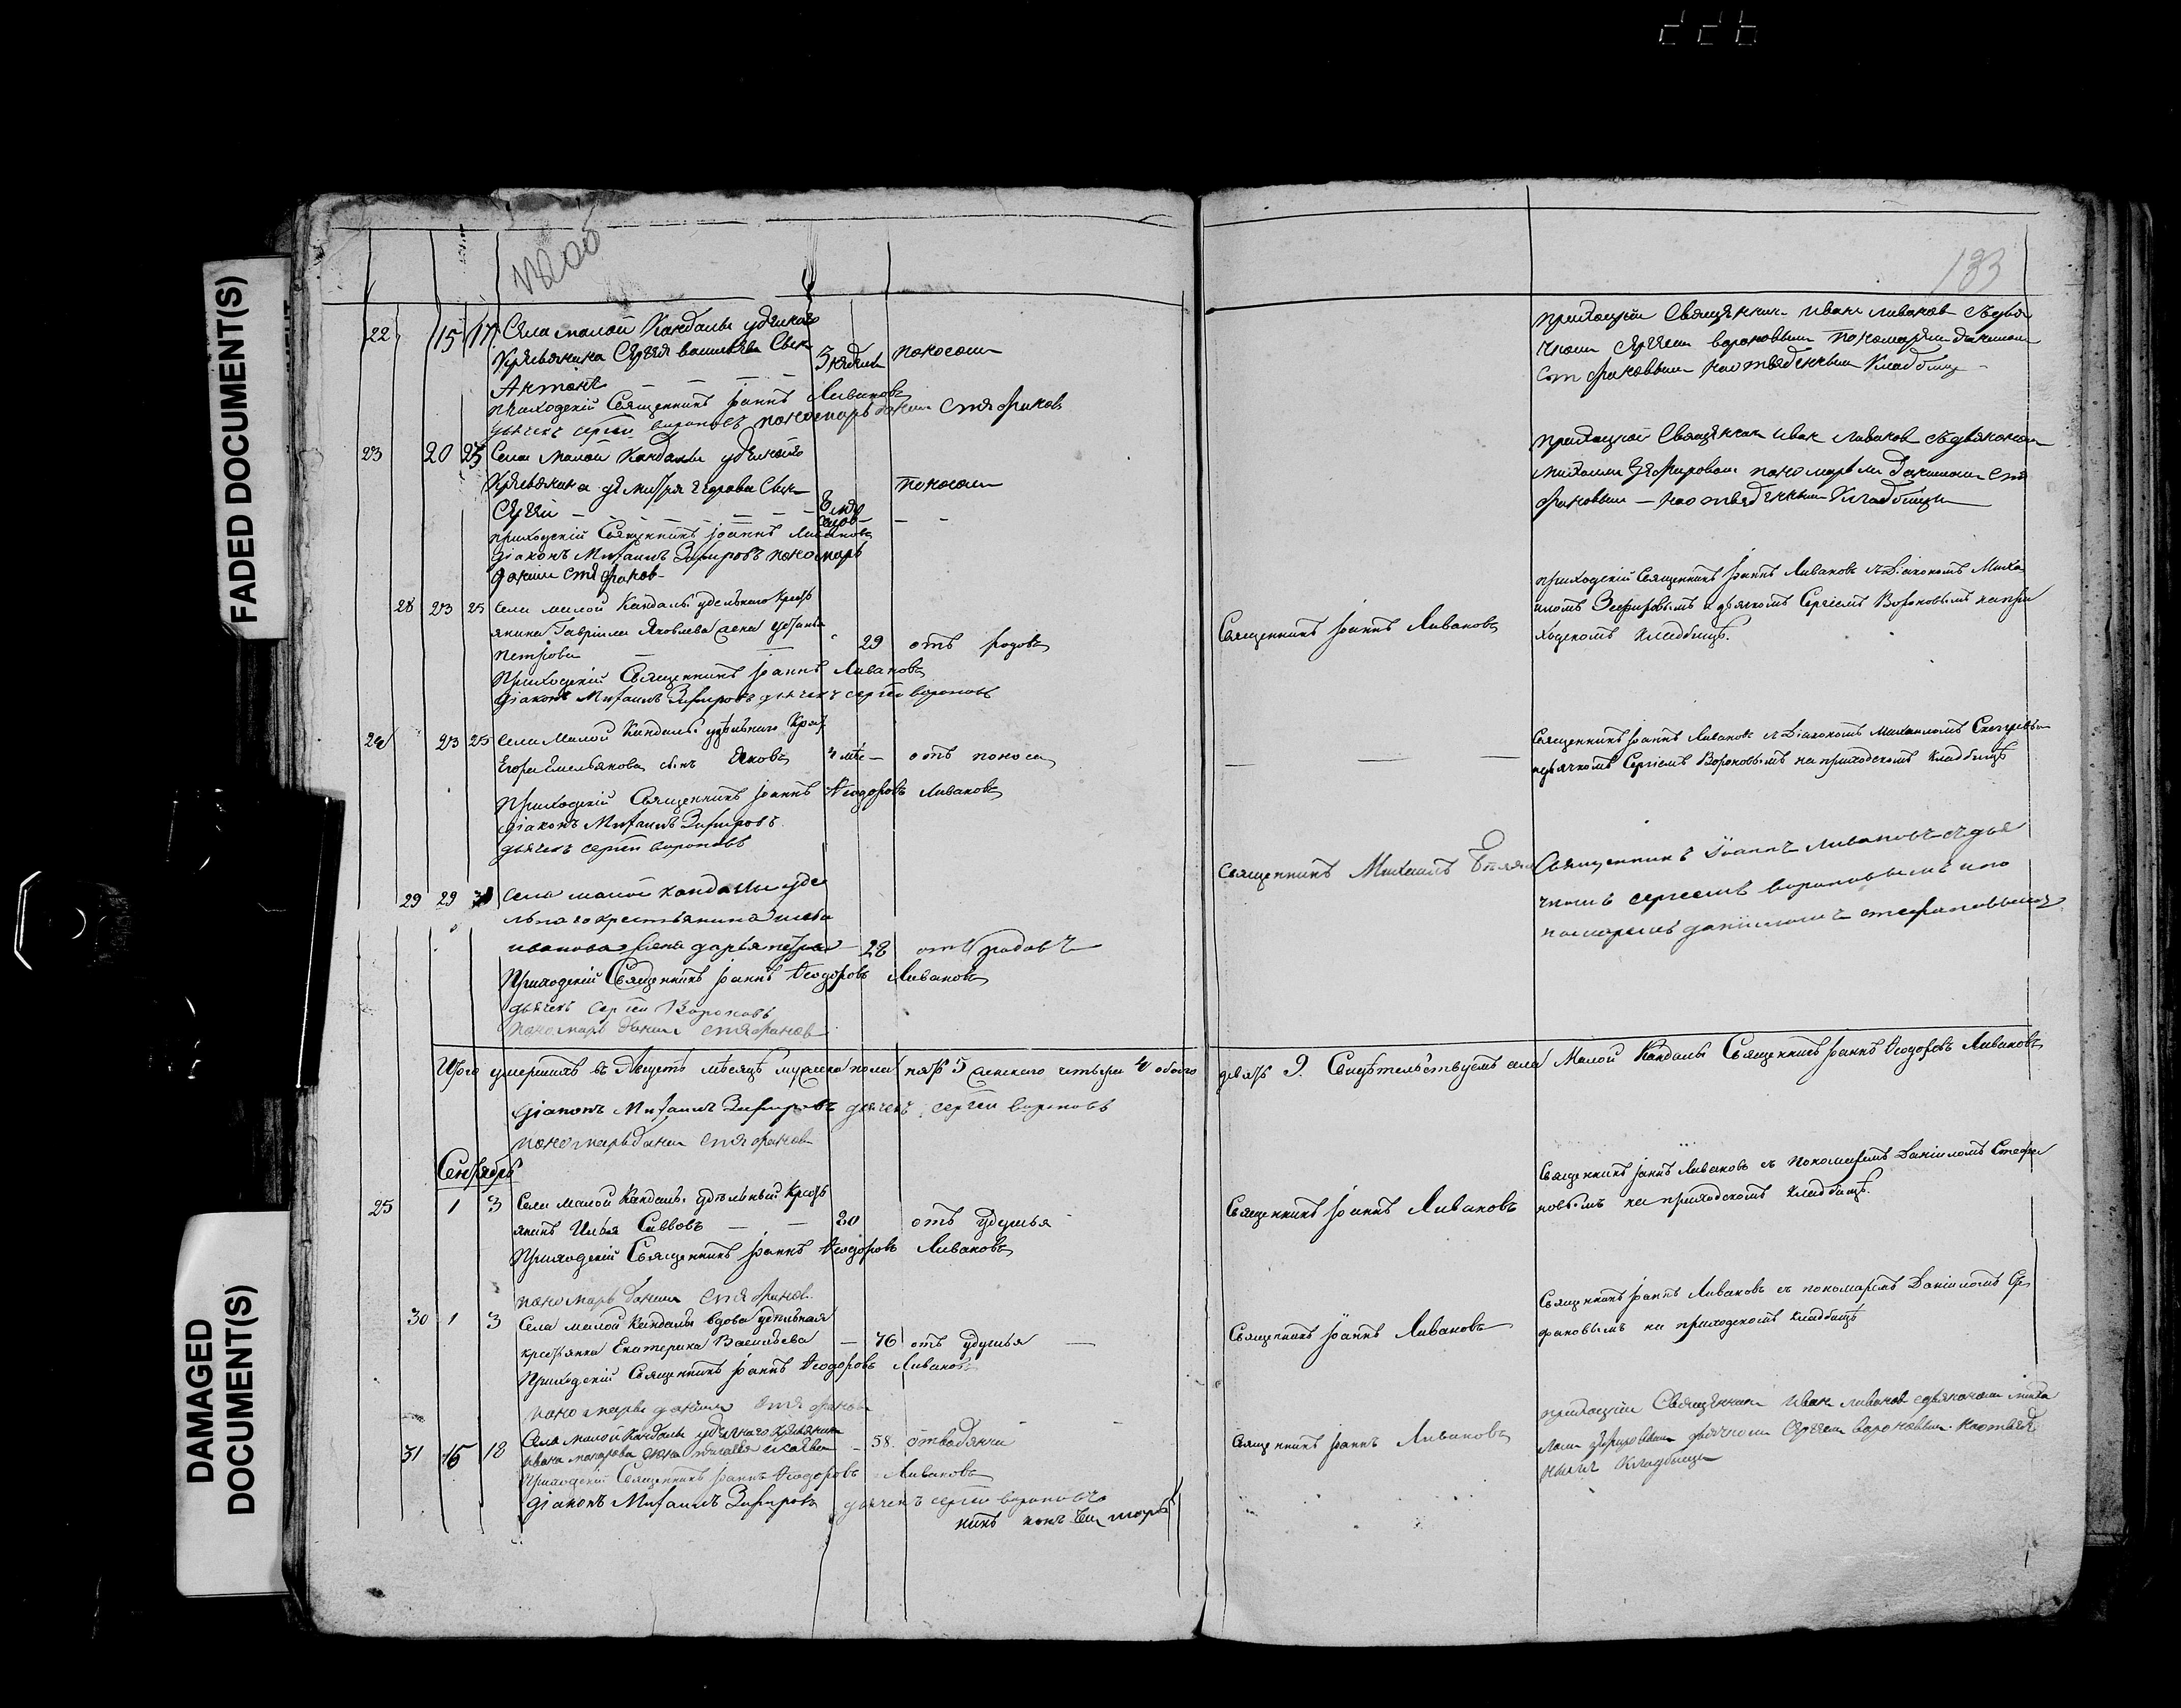 FADED DOCUMENT(S)
DAMAGED
DOCUMENT(S)
133
22 15 17 Села малой Кандалы удельнаго
крестьянина Сергея васильева Сын
Антонъ 3 недели поносом
приходскій Священникъ Іоаннъ Ливановъ
дьячекъ сергей вороновъ пономарь данил стефанов
приходский Священник иван ливанов с дья
чком сергеем вороновым пономарем данилом
стефановым на отведенным кладбище
23 20 23 Села малой Кандалы удельного
крестьянина дмитрия егорова Сын поносом
Сергей
приходскій Священникъ Іоаннъ Ливановъ
діаконъ Михаилъ Зефировъ пономарь
данил стефанов
приходской Священник иван ливанов с дьяконом
михаилом Зефировом пономарем данилом сте
фановым на отведенным кладбище
28 23 25 Села малой Кандалы удельнаго крестъ
янина Гавріила Яковлева жена
петрова 29 отъ родовъ
Приходскій Священникъ Іоаннъ Ливановъ
діаконъ Михаилъ Зефировъ дьячекъ сергей вороновъ
Священникъ Іоаннъ Ливановъ
приходскій Священникъ Іоаннъ Ливановъ съ Діакономъ Миха
иломъ Зефировымъ и дьячкомъ Сергіемъ Вороновымъ на при
ходскомъ кладбищѣ.
24 23 25 Села Малой Кандалы удѣльнаго Крест
Егора Емельянова сынъ Яковъ 4 мѣс отъ поноса
Приходскій Священникъ Іоаннъ Ѳеодоровъ Ливановъ
діаконъ Михаилъ Зефировъ
дьячекъ сергей вороновъ
Священникъ Іоаннъ Ливановъ съ Діакономъ Михаиломъ
и дьячкомъ Сергіемъ Вороновымъ на приходскомъ кладбищѣ
29 29 31 Села малой кандалы уде
льнаго крестьянина
иванова жена дарья петрова 28 отъ родовъ
Приходскій Священникъ Іоаннъ Ѳеодоровъ Ливановъ
дьячекъ Сергей Вороновъ
пономарь данил стефанов
Священникъ Михаилъ
Священникъ Іоаннъ ливановъ съ дья
чкомъ сергеемъ вороновымъ и по
номаремъ даніиломъ стефановымъ
Итого умершихъ въ Августѣ мѣсяцѣ мужеска пола пять 5 женского четыри 4 обоего девять 9. Свидѣтельствуемъ села Малой Кандалы Священникъ Іоаннъ Ѳеодоровъ Ливановъ
діаконъ Михаилъ Зефировъ дьячекъ сергей вороновъ
пономарь данил стефанов
Сентябрь
25 1 3 Села малой Кандалы удѣльный Крестъ
янинъ Илья Савовъ 80 отъ удушья
Приходскій Священникъ Іоаннъ Ѳеодоровъ Ливановъ
пономарь данил стефанов
Священникъ Іоаннъ Ливановъ
Священникъ Іоаннъ Ливановъ съ Пономаремъ Даніиломъ Стефа
новымъ на приходскомъ кладбищѣ.
30 1 3 Села малой Кандалы вдова удельная
крестьянка Екатерина Васильева 76 отъ удушья
Приходскій Священникъ Іоаннъ Ѳеодоровъ Ливановъ
пономарь данил стефанов
Священникъ Іоаннъ Ливановъ
Священникъ Іоаннъ Ливановъ съ пономаремъ Даніиломъ Сте
фановымъ на приходскомъ кладбищѣ
31 16 18 Села малой Кандалы удельнаго крестьянина
ивана макарова жена 58
Приходскій Священникъ Іоаннъ Ѳеодоровъ Ливановъ
діаконъ Михаилъ Зефировъ дьячекъ сергей вороновъ
Священникъ Іоаннъ Ливановъ
приходский Священник иван ливанов с дьяконом миха
лом Зефировым дьячком сергеем вороновым на отведе
ным кладбище